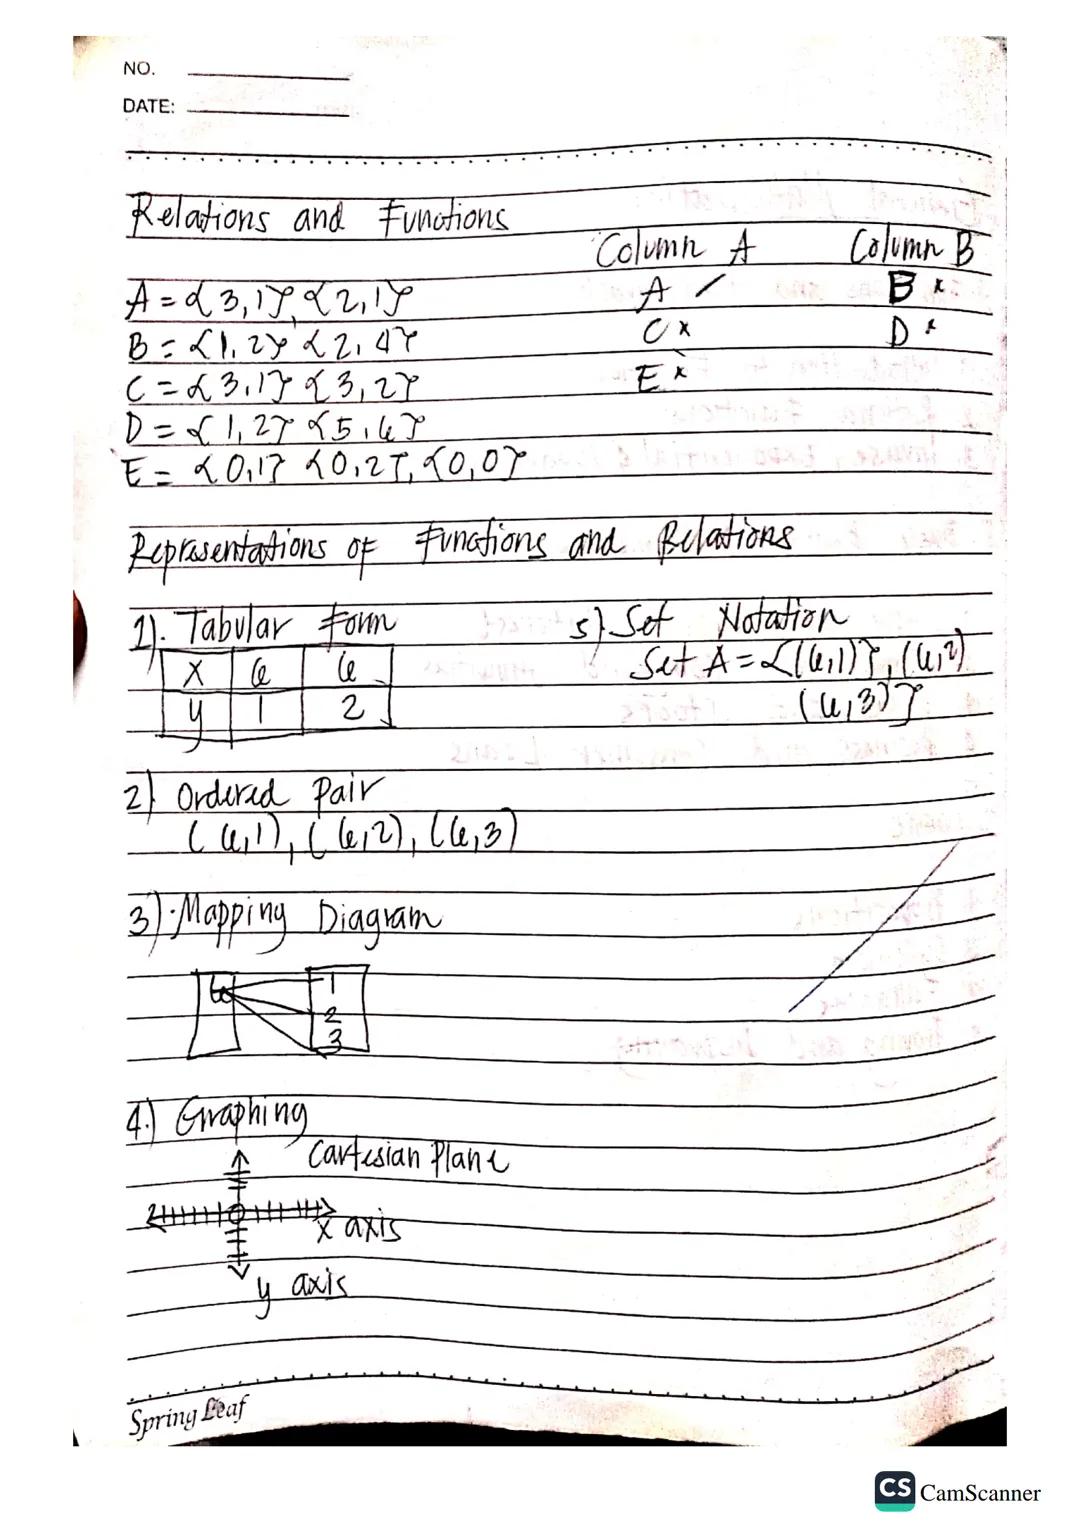 NO.
DATE:
Relations and Functions
Column A Column B
A = {3,1}, {2,1}
A / B x
B = {1,2} {2,4}
C x D x
C = {3,1} {3,2}
E x
D = {1,2} {5,6}
E = {0,1} {0,2}, {0,0}
Representations of Functions and Relations
1). Tabular Form
x 6 6
y 1 2
5) Set Notation
Set A = {(6,1)}, (6,2)
(6,3)}
2) Ordered Pair
(6,1), (6,2), (6,3)
3). Mapping Diagram
6 1
2
3
4.) Graphing
Cartesian Plane
x axis
y axis
Spring Leaf
CS CamScanner